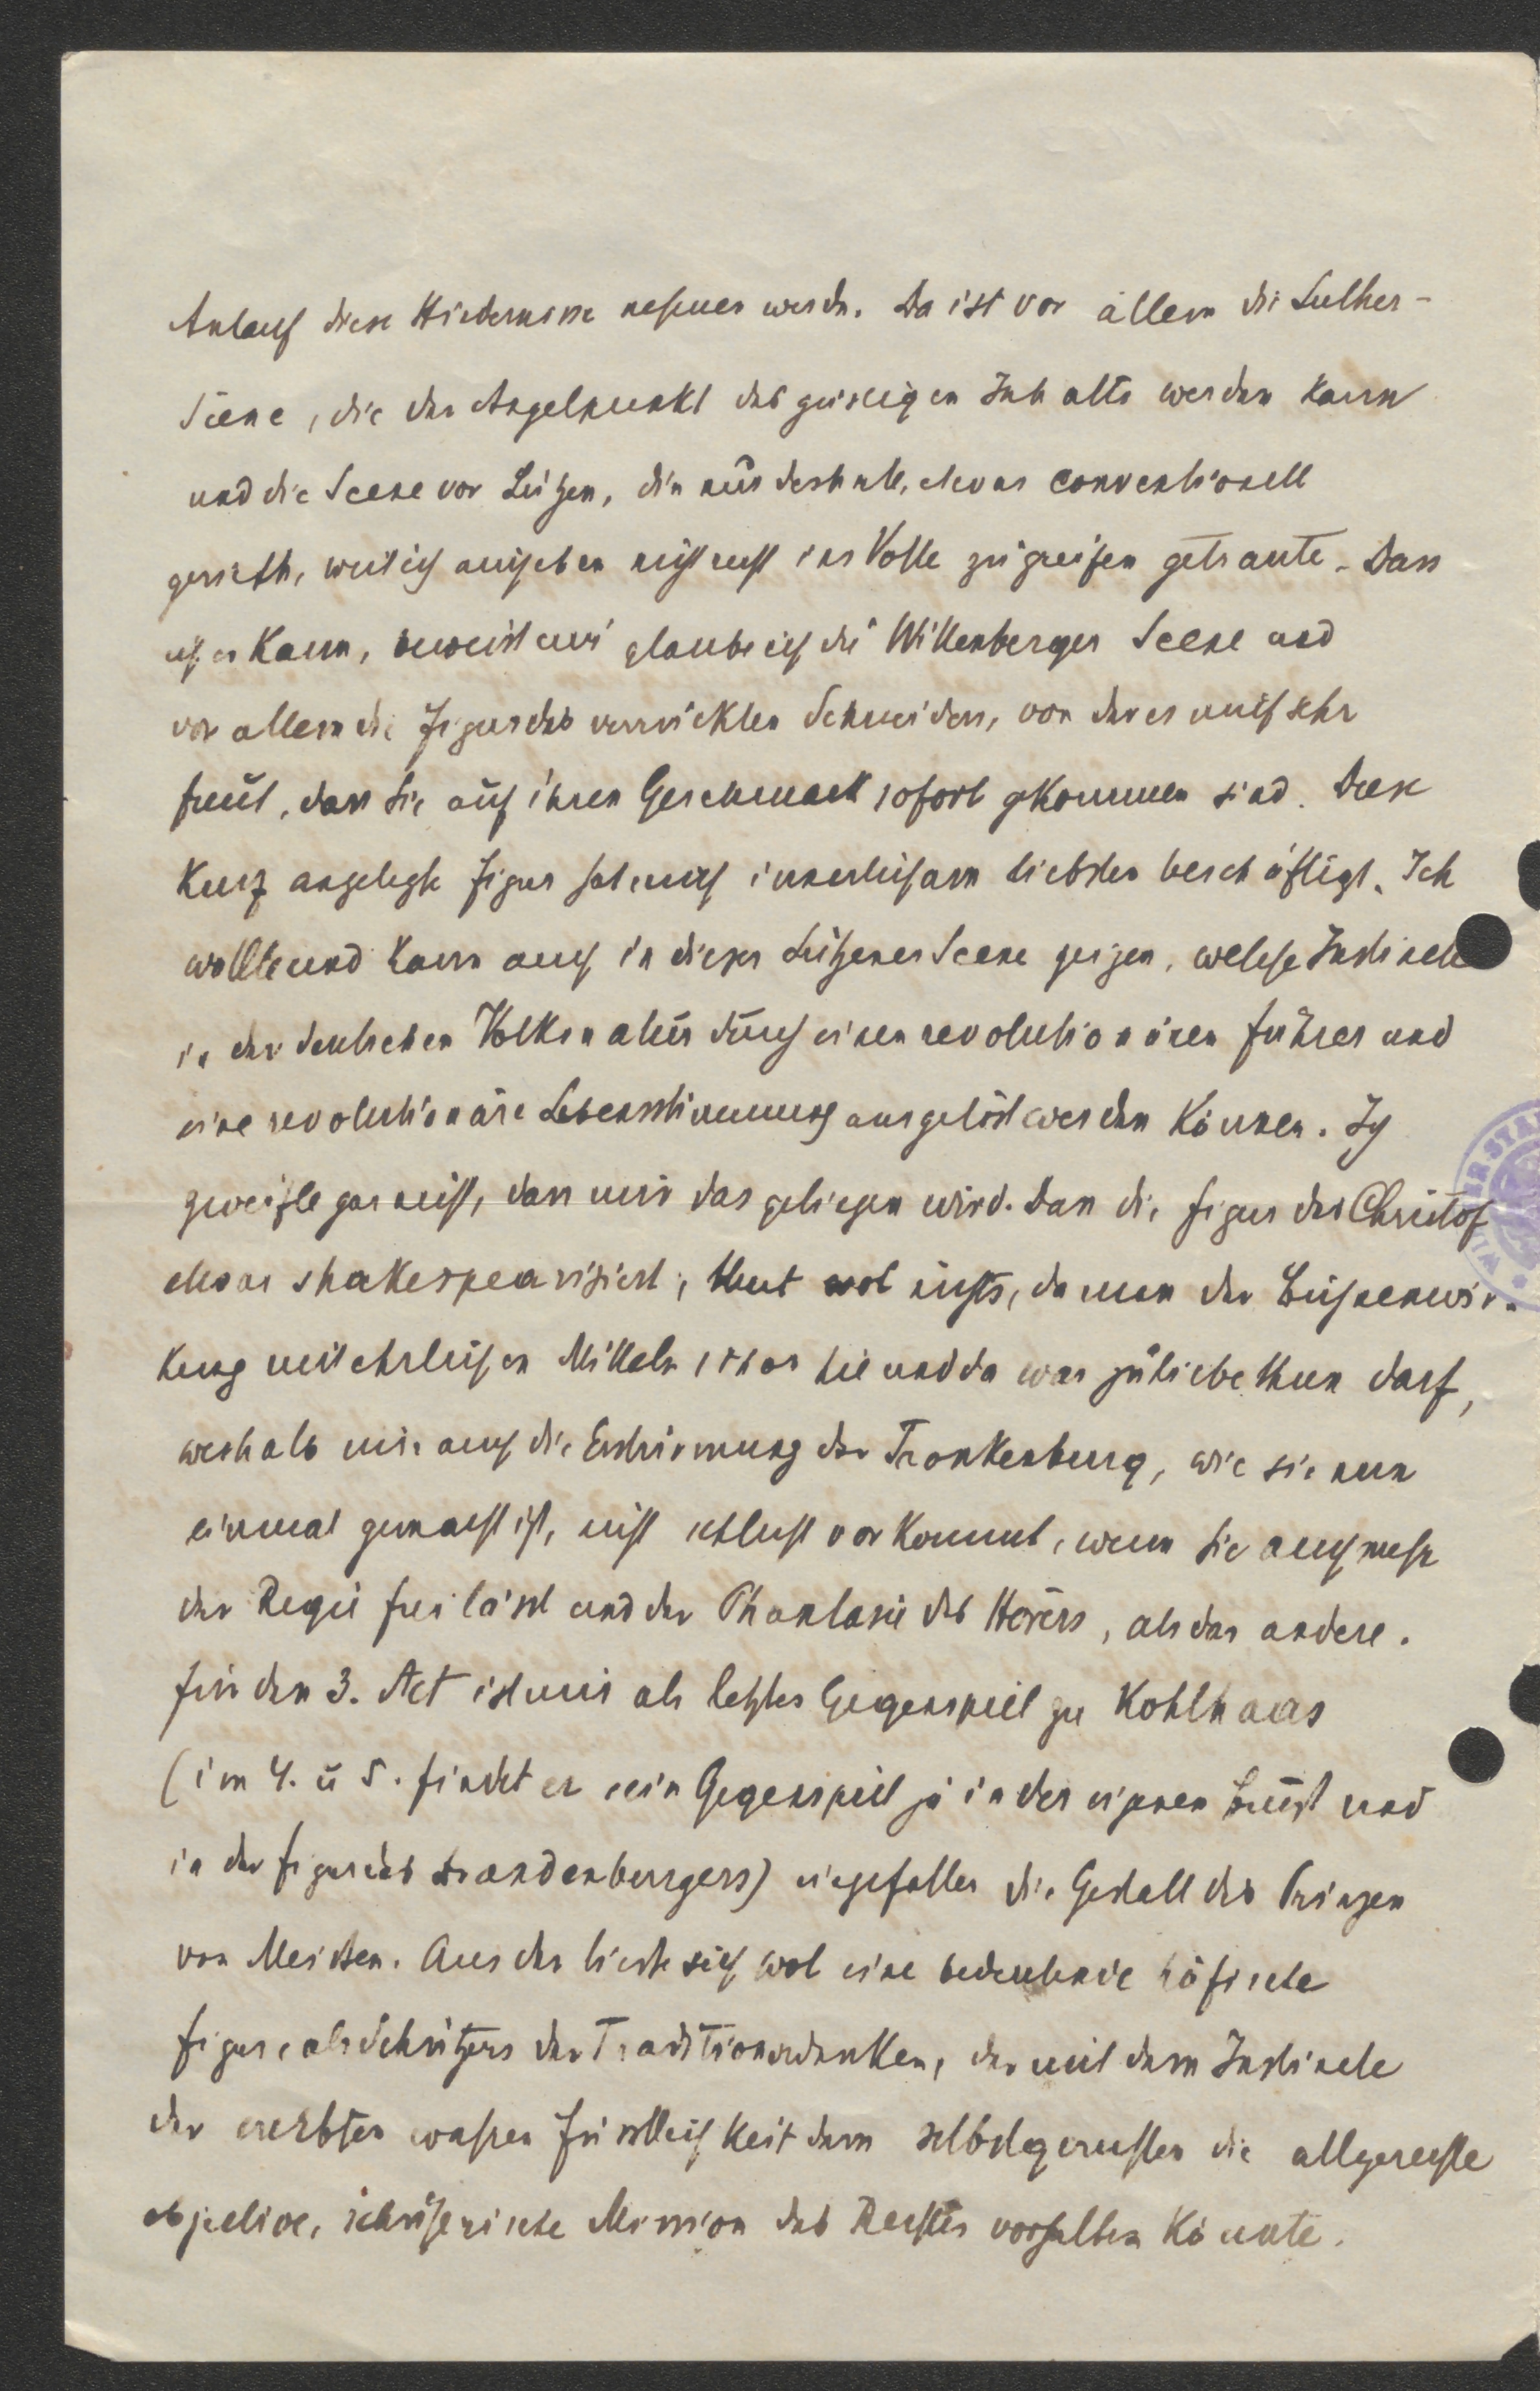 Anlauf diese Hindernisse nehmen werde. Da ist vor allem die Luther-
Scene, die der Angelpunkt des geistigen Inhalts werden kann
und die Scene vor Lützen, die nur deshalb, etwas conventionell
gerieth, weil ich mich eben nicht recht ins Volle zu greifen getraute. Dass
ich es kann, beweist mir glaube ich die Wittenberger Scene und
vor allem die Figur des verrückten Schneiders, von der es mich sehr
freut, dass Sie auf ihren Geschmack sofort gekommen sind. Diese
kurz angelegte Figur hat mich innerlich am liebsten beschäftigt. Ich
wollte und kann auch in dieser Lützener Scene zeigen, welche Instincte
in der deutschen Volksnatur durch einen revolutionären Führer und
eine revolutionäre Lebensstimmung ausgelöst werden können. Ich
zweifle gar nicht, dass mir das gelingen wird. Dass die Figur des Christof
etwas shakespearisiert, thut wol nichts, da man der Bühnenwir-
kung mit ehrlichen Mitteln schon hie und da was zuliebe thun darf,
weshalb mir auch die Erstürmung der Tronkenburg, wie sie nun
einmal gemacht ist, nicht schlecht vorkommt, wenn sie auch mehr
der Regie frei lässt und der Phantasie des Hörers, als das andere.
Für den 3. Act ist mir als letztes Gegenspiel zu Kohlhaas
(im 4. u 5. findet er sein Gegenspiel ja in der eigenen Brust und
in der Figur des Brandenburgers) eingefallen die Gestalt des Prinzen
von Meissen. Aus der liesse sich wol eine bedeutende höfische
Figur, als Schützers des Traditionsgedanken, der mit dem Instincte
der ererbten wahren Fürstlichkeit dem selbstgerechten die allgerechte
objective, schöpferische Mission des Rechtes vorhalten könnte.